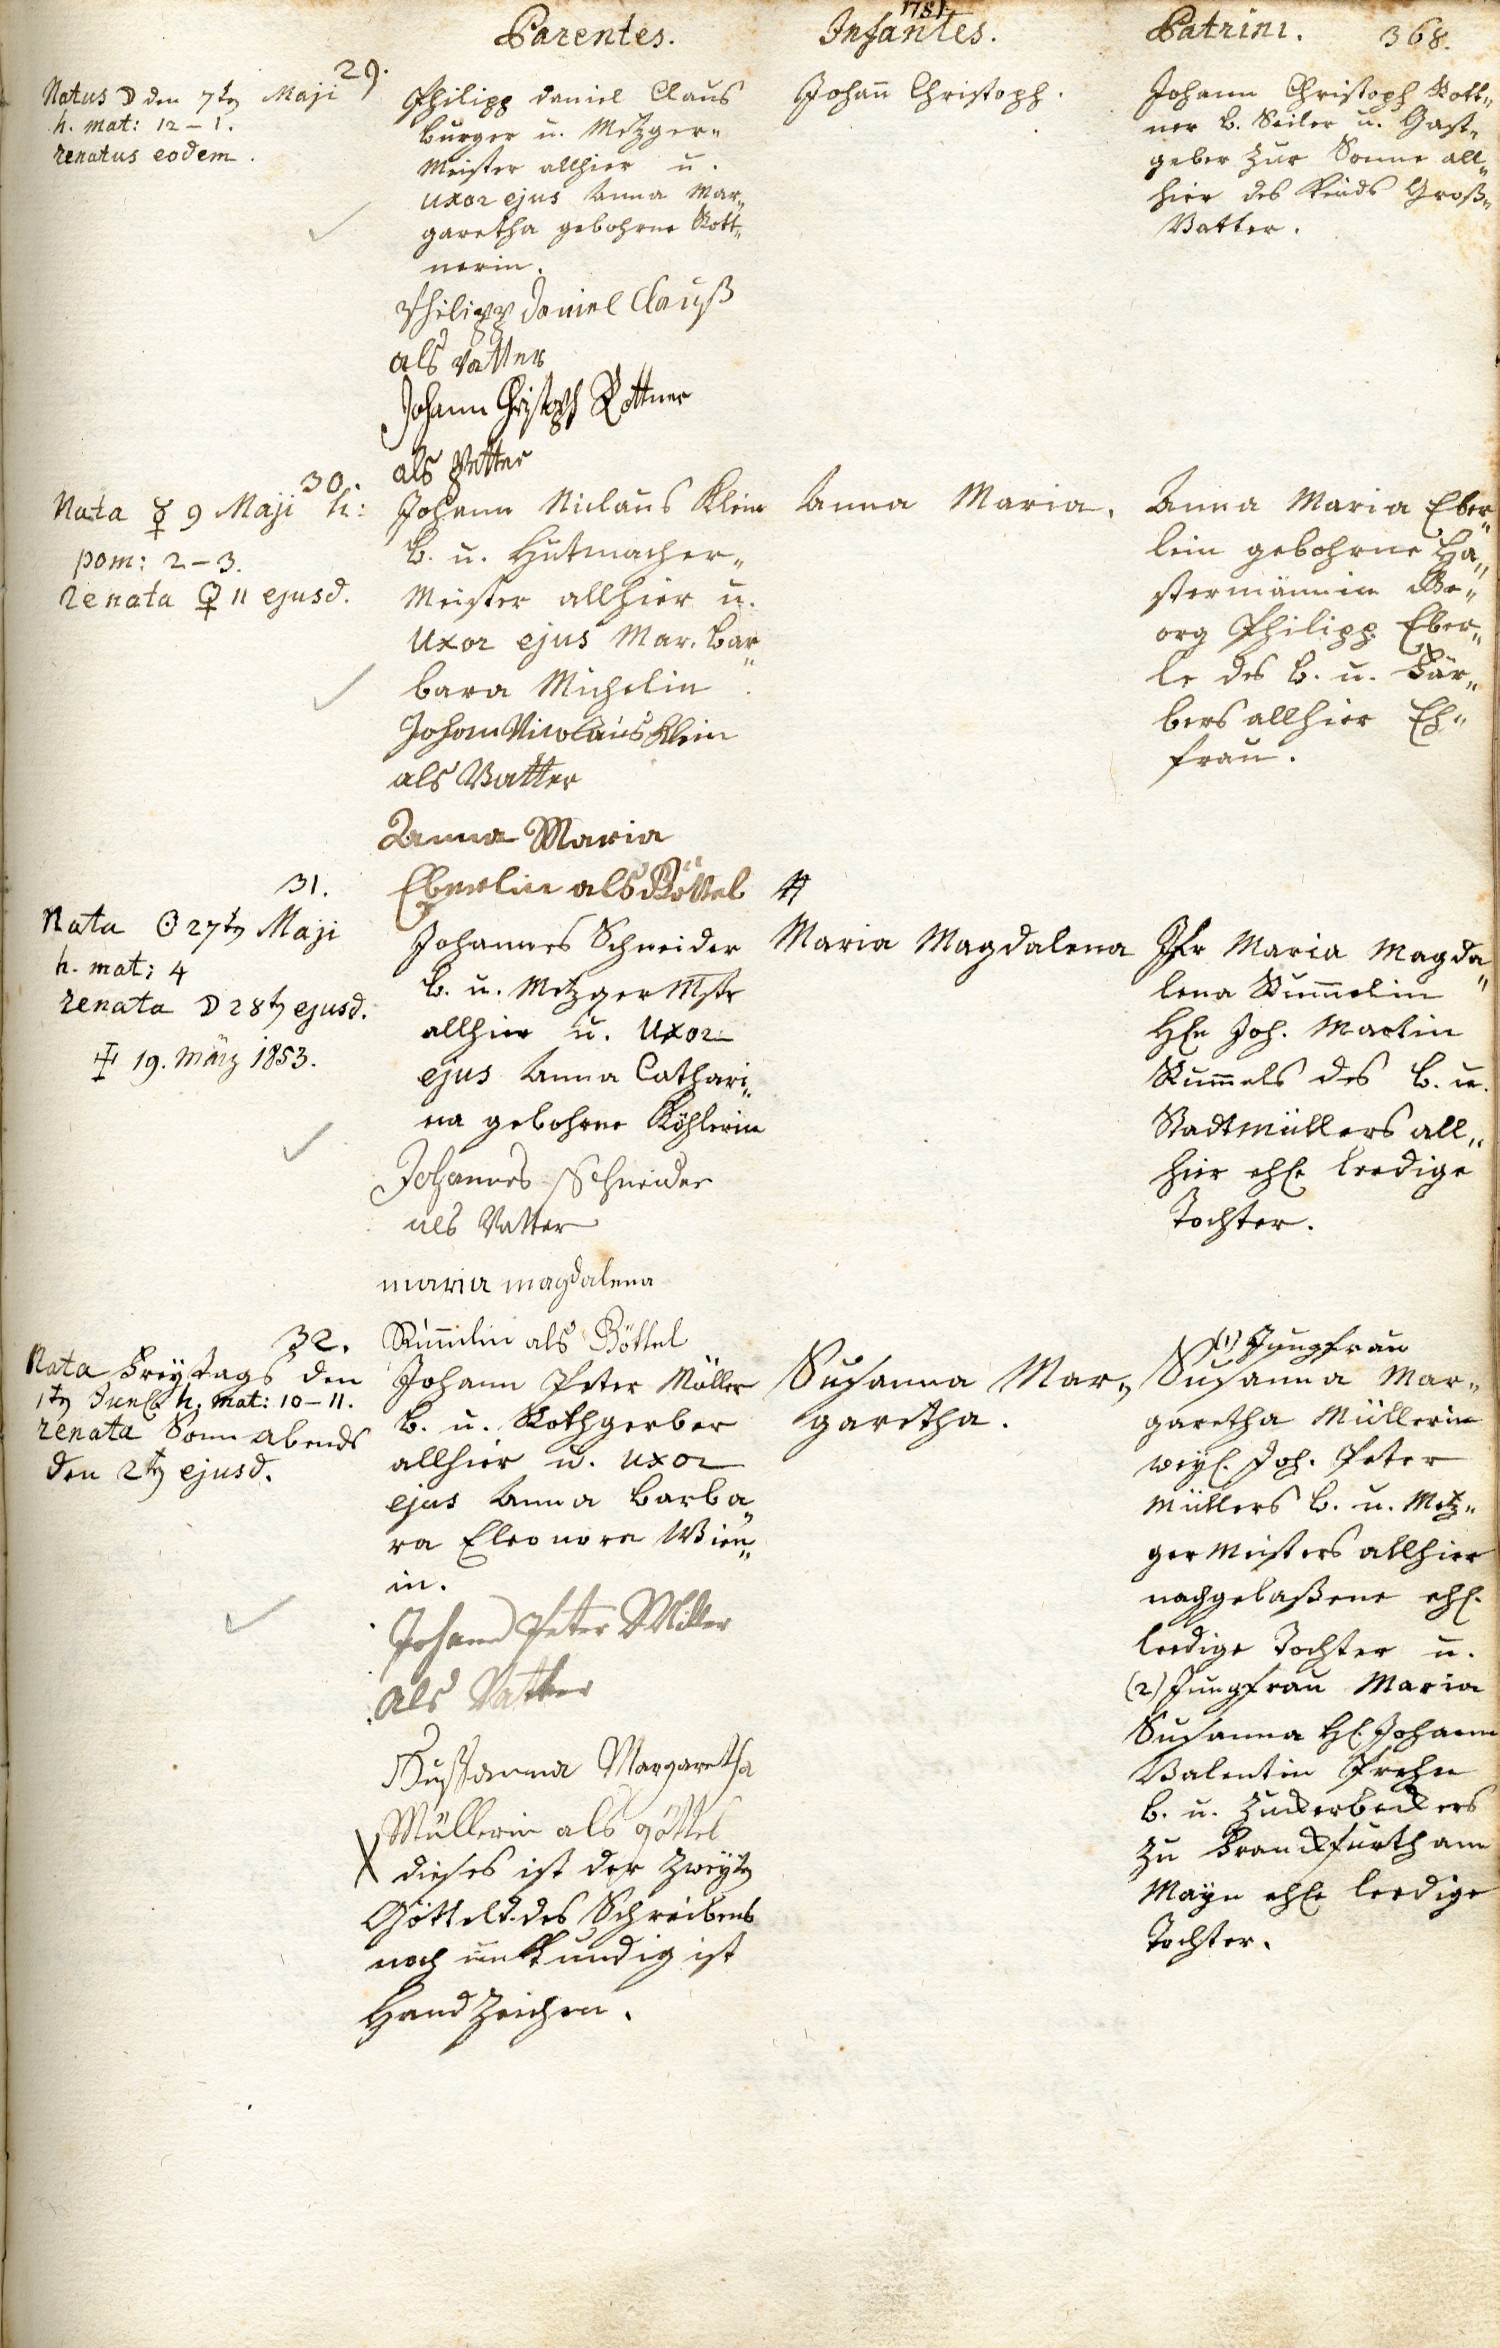 1781.
Parentes. Infantes. Patrini. 368.
29.
Natus ☽ den 7ten Maji
h. mat: 12 – 1.
renatus eodem.
Philipp Daniel Claus
burger u. Metzger„
Meister allhier u.
uxor ejus Anna Mar„
garetha gebohrne Rott„
nerin.
Philipp Daniel Clauß
als Vatter
Johann Christoph Rottner
als Petter
Johañ Christoph.
Johann Christoph Rott„
ner b. Seiler u. Gast„
geber zur Sonne all„
hier des Kinds Groß„
Vatter.
30.
Nata ☿ 9 Maji h:
pom: 2 – 3.
renata ♀ 11 ejusd.
Johann Niclaus Klein
b. u. Hutmacher„
Meister allhier u.
uxor ejus Mar. Bar„
bara Michelin.
Johann Nicolaus Klein
als Vatter
Anna Maria
Eberlin als Göttel
Anna Maria.
Anna Maria Eber„
lein gebohrne Ha„
stermännin Ge„
org Philipp Eber„
le des b. u. Fär„
bers allhier Eh„
frau.
31.
Nata ☉ 27ten Maji
h. mat: 4
renata ☽ 28ten ejusd.
19. März 1853.
Johannes Schneider
b. u. Metzger Mstr
allhier u. uxor
ejus Anna Cathari„
na gebohrne Köhlerin
Johannes Schneider
als Vatter
maria magdalena
Rümelin als Göttel
Maria Magdalena
Jfr Maria Magda„
lena Rummelin
Hn Joh. Martin
Rummels des b. u.
Stadtmüllers all„
hier ehl. leedige
Tochter.
32.
Nata Freytags den
1ten Junii h. mat: 10 – 11.
renata Sonnabends
den 2ten ejusd.
Johann Peter Möller
b. u. Rothgerber
allhier u. uxor
ejus Anna Barba„
ra Eleonora Wien„
in.
Johann Peter Miller
als Vatter
Sussanna Margaretha
Müllerin als göttel
X dieses ist der zweyten
Göttel d. des Schreibens
noch unkundig ist
Handzeichen.
Susanna Mar„
garetha.
(1) Jungfrau
Susanna Mar„
garetha Müllerin
weyl. Joh. Peter
Müllers b. u. Metz„
germeisters allhier
nachgelaßene ehl.
leedige Tochter u.
(2) Jungfrau Maria
Susanna H. Johann
Valentin Prehn
b. u. Zuckerbeckers
zu Franckfurth am
Mayn ehl. leedige
Tochter.